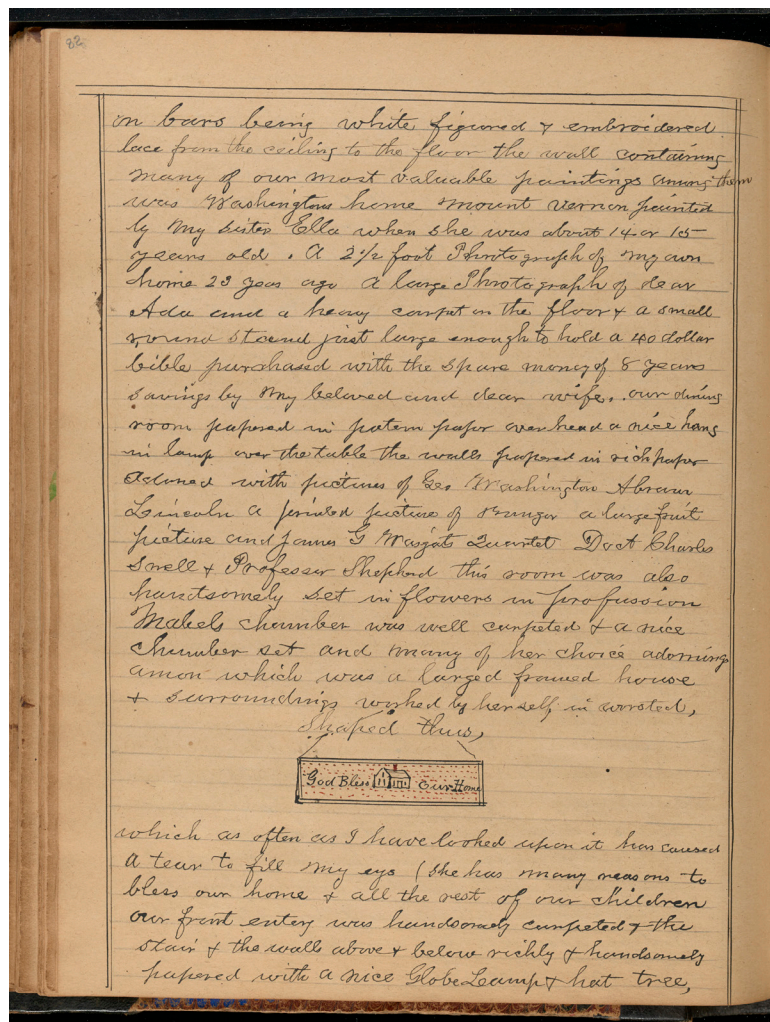 82
on bars being white figured & embroidered
lace from the ceiling to the floor the wall containing
many of our most valuable paintings among them
was Washingtons home Mount Vernon painted
by my sister Ella when she was about 14 or 15
years old. A 2 1/2 foot Photograph of my own
home 23 yeas ago A large Photograph of dear
Ada and a heavy carpet on the floor & a small
round stand just large enough to hold a 40 dollar
bible purchased with the spare money of 8 years
savings by my beloved and dear wife. our dining
room papered in patern paper over head a nice hang
in lamp over the table the walls papered in rich paper
adorned with pictures of Geo Washington Abram
Lincoln a printed picture of Bangor a large fruit
picture and James G Quartet Doct Charles
Snell & Professer Shepherd this room was also
handsomely set in flowers in profussion
Mabels chamber was well carpeted & a nice
chamber set and many of her choice adornings
amon which was a larged framed house
& surroundings worked by herself in worsted,
Shaped thus,
God Bless our Home
which as often as I have looked upon it has caused
a tear to fill my eys (she has many reasons to
bless our home & all the rest of our children
our front entry was handsomely carpeted & the
stair & the walls above & below richly & handsomely
papered with a nice Globe Leamp & hat tree,